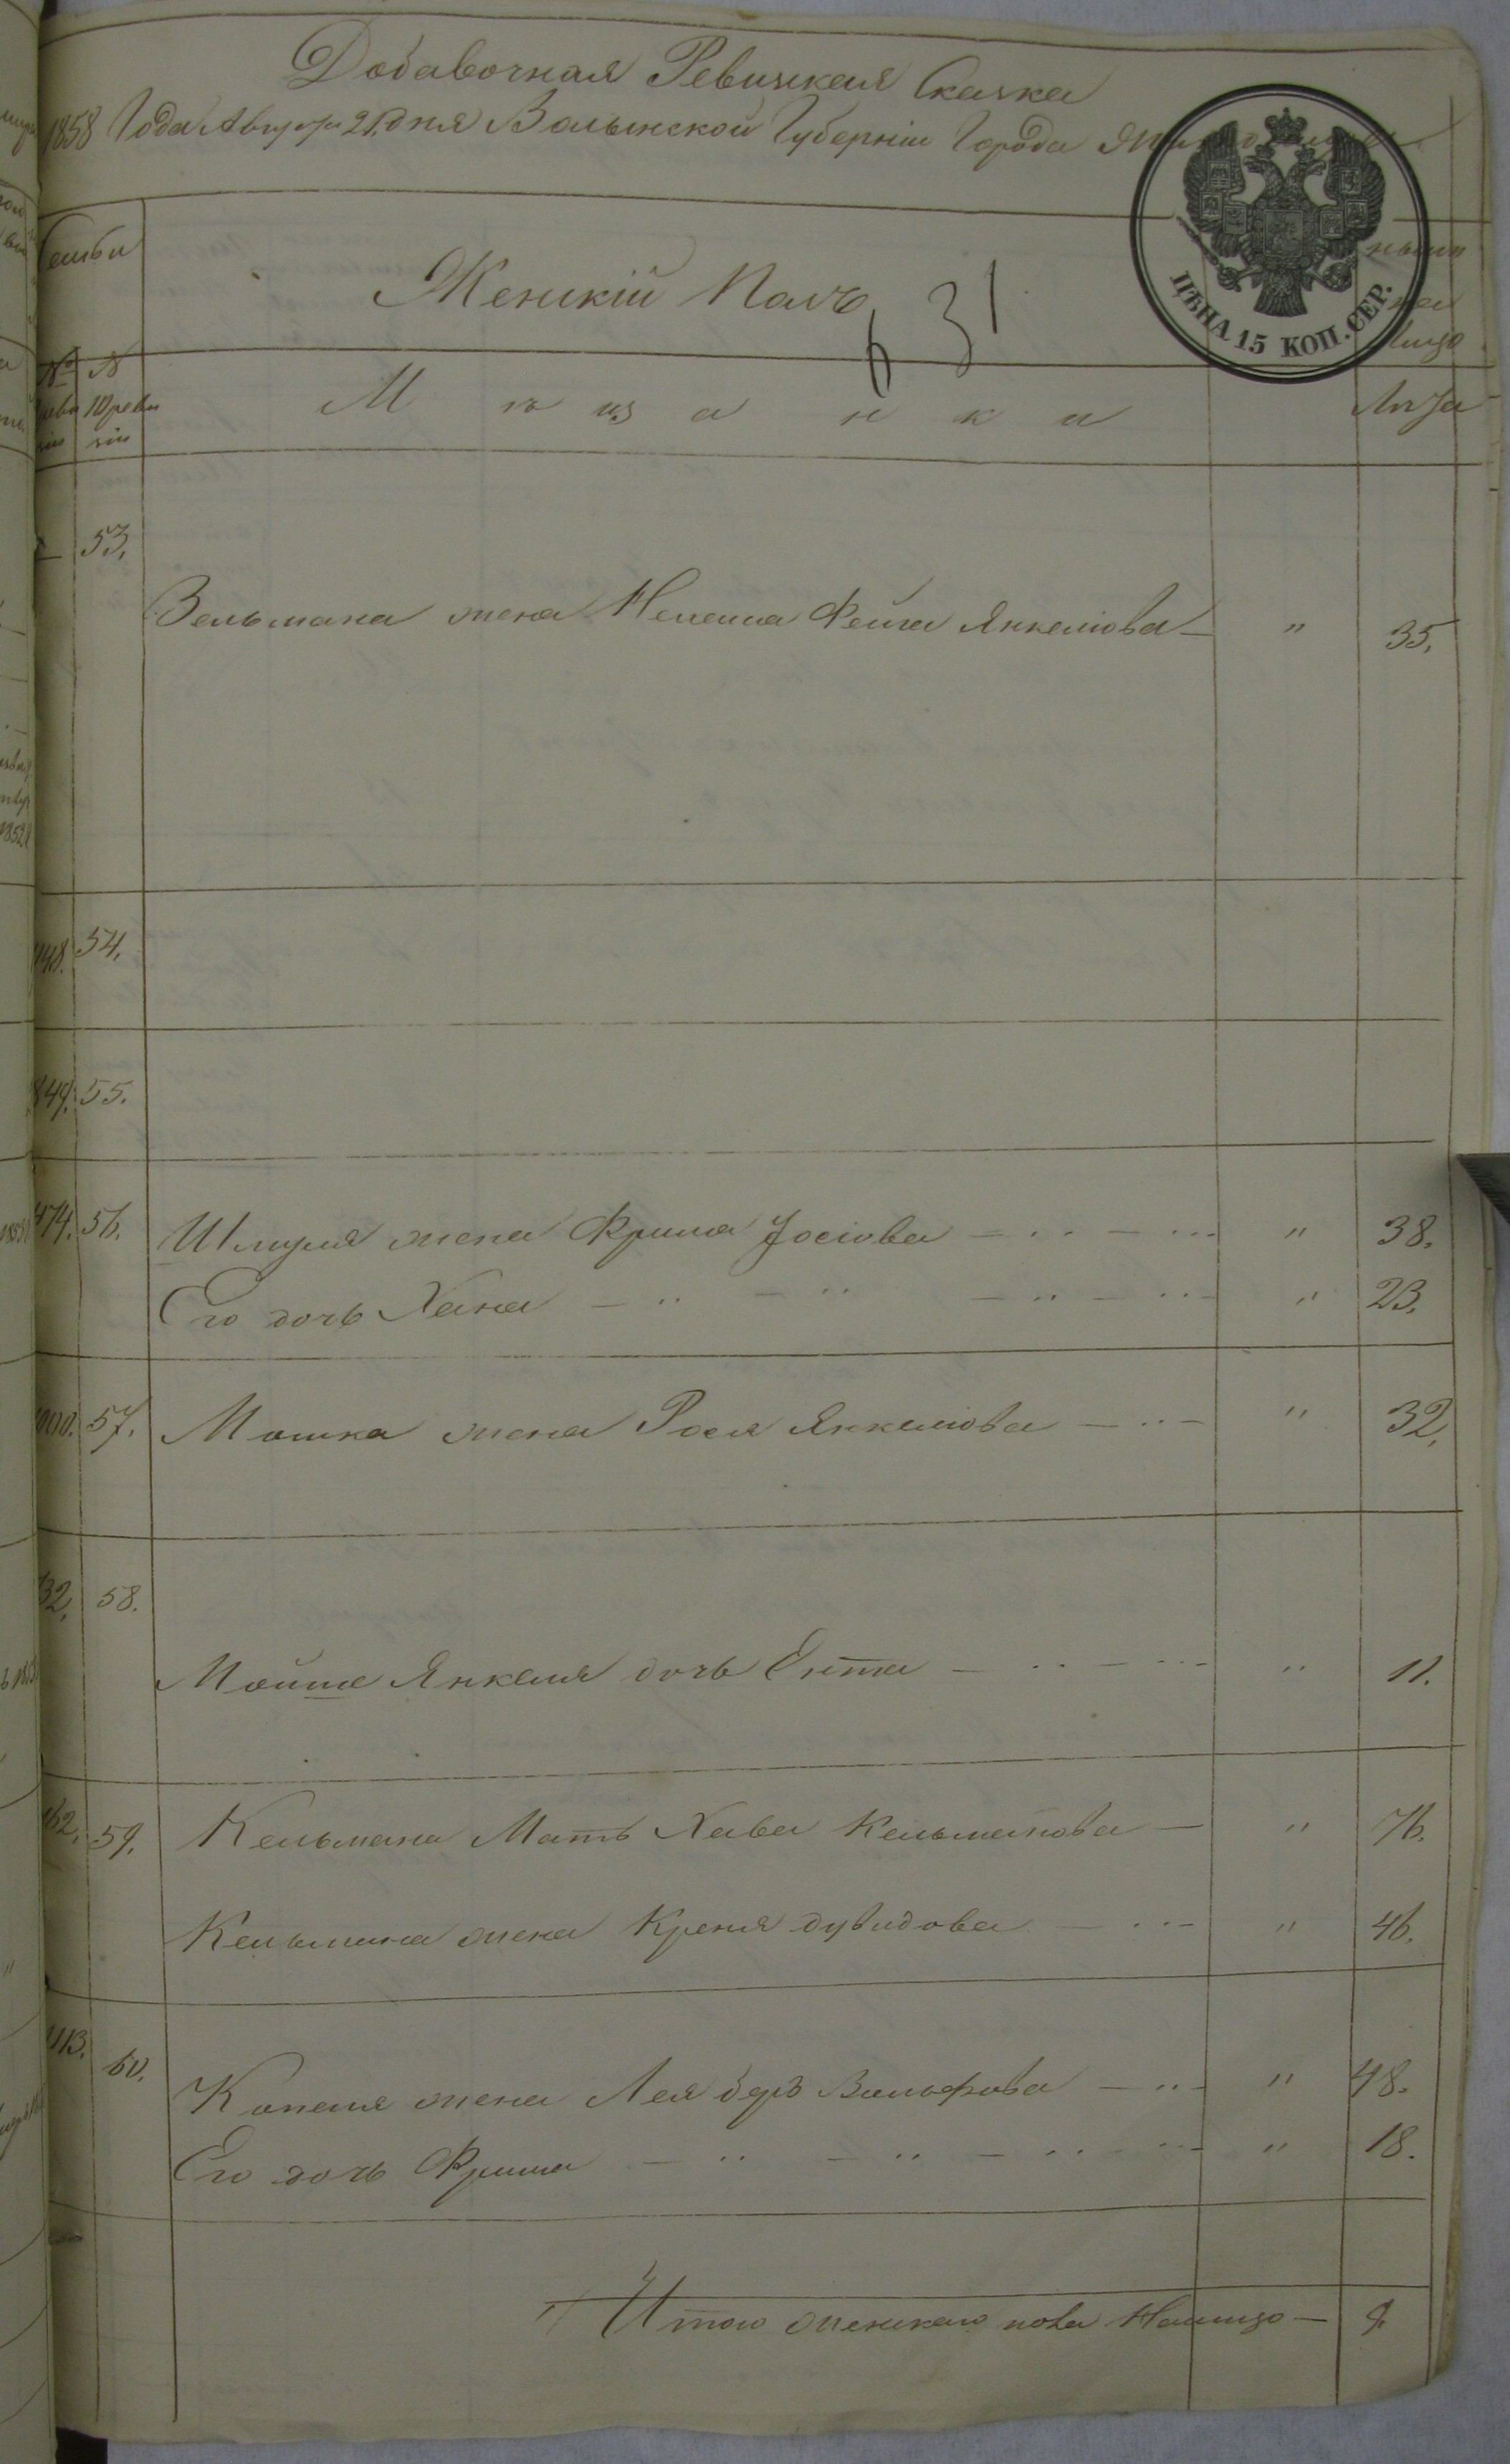 Добавочная Ревизкая Сказка
1858 Года Августа 21 дня Волынской Губерніи Города
ЦѢНА 15 КОП. СЕР.
Семьи
Женскій Полъ
631
нынѣ
на
лицо
№ №
реви 10 реви
зіи зіи
М ѣ щ а н к и
Лѣта
53.
Зельмана жена Нехама Фейга Янкелiова — " 35.
54.
849. 55.
474. 56. Шмуля жена Фрима Іосіова — " 38.
Его дочь Хана — " 23.
57. Мошка жена Рося Янкеліова — " 32.
32. 58.
Мойше Янкеля дочь Ента — " 11.
62. 59. Кельмана Мать Хава Кельманова — " 76.
Кельмана жена Креня дувидова — " 46.
113. 60. Копеля жена Лея беръ Вольфова — " 48.
Его дочь Фрима — " 18.
Итого женскаго пола Налицо — 9.